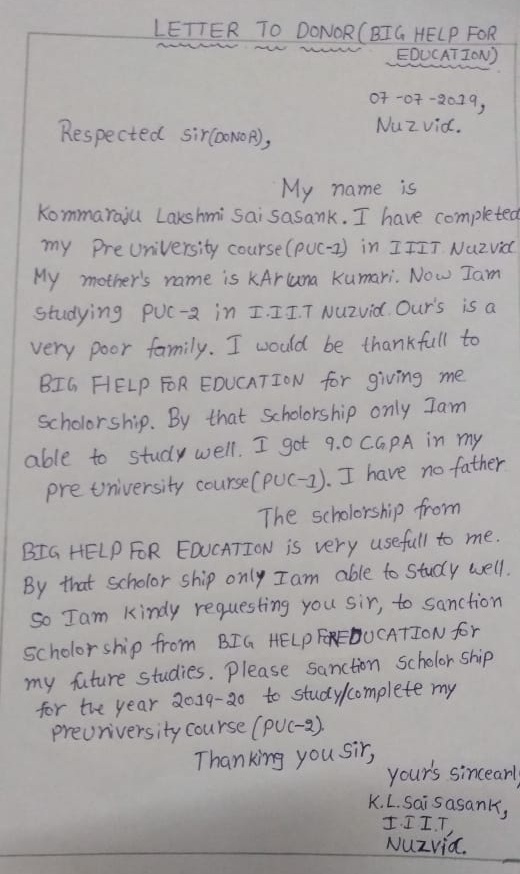 LETTER TO DONOR(BIG HELP FOR
EDUCATION)
07-07-2019,
Nuzvid.
Respected sir(DONOR),
My name is
Kommaraju Lakshmi Sai Sasank. I have completed
my Pre University course(PUC-1) in IIIT Nuzvid
My mother's name is kAruna Kumari. Now Iam
studying PUC-2 in I.I.I.T Nuzvid. Our's is a
very poor family. I would be thankfull to
BIG HELP FOR EDUCATION for giving me
scholorship. By that scholorship only Iam
able to study well. I got 9.0 CGPA in my
pre university course(PUC-1). I have no father
The scholorship from
BIG HELP FOR EDUCATION is very usefull to me.
By that scholor ship only Iam able to study well.
So Iam kindy requesting you sir, to sanction
scholor ship from BIG HELP FOREDUCATION for
my future studies. Please sanction scholor ship
for the year 2019-20 to study/complete my
preuniversity course (PUC-2).
Thanking you sir,
your's sincearl
K.L.Sai Sasank,
I.I.I.T,
Nuzvid.